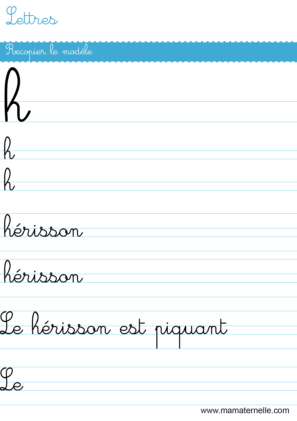 Lettres
Recopier le modèle
h
h
h
hérisson
hérisson
Le hérisson est piquant
Le
www.mamaternelle.com